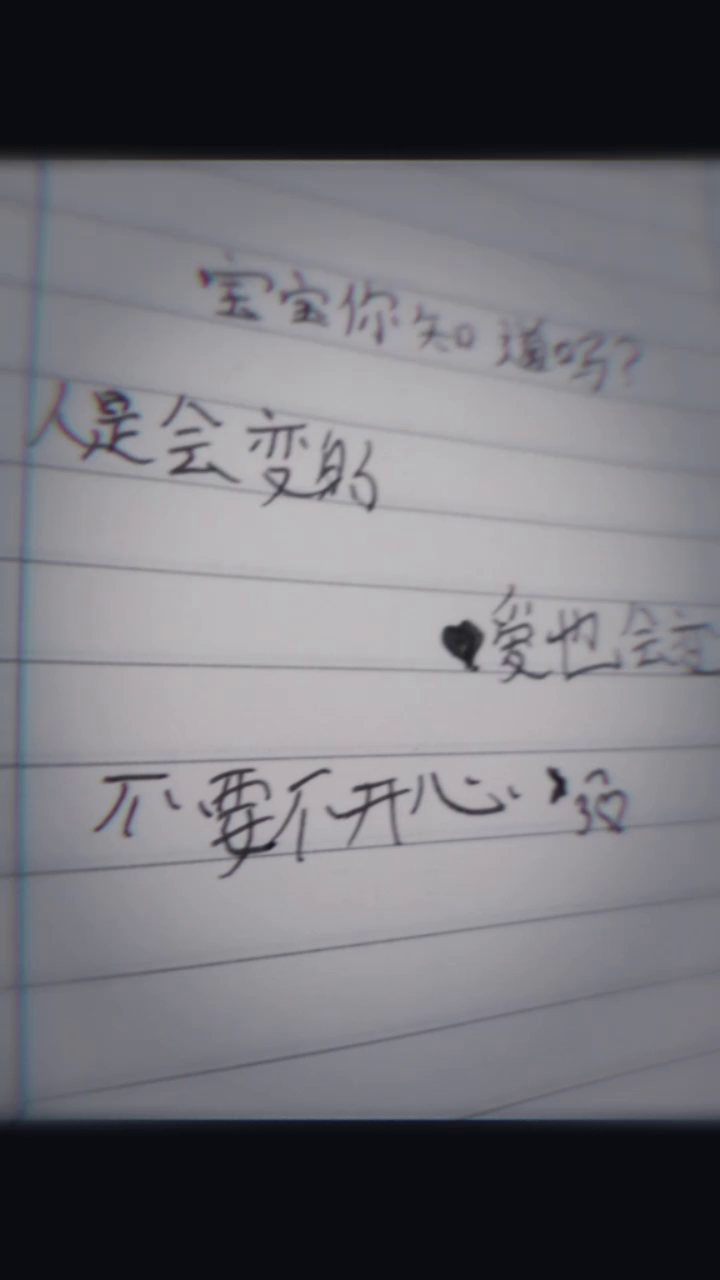 宝宝你知道吗?
人是会变的
♥爱也会变
不要不开心